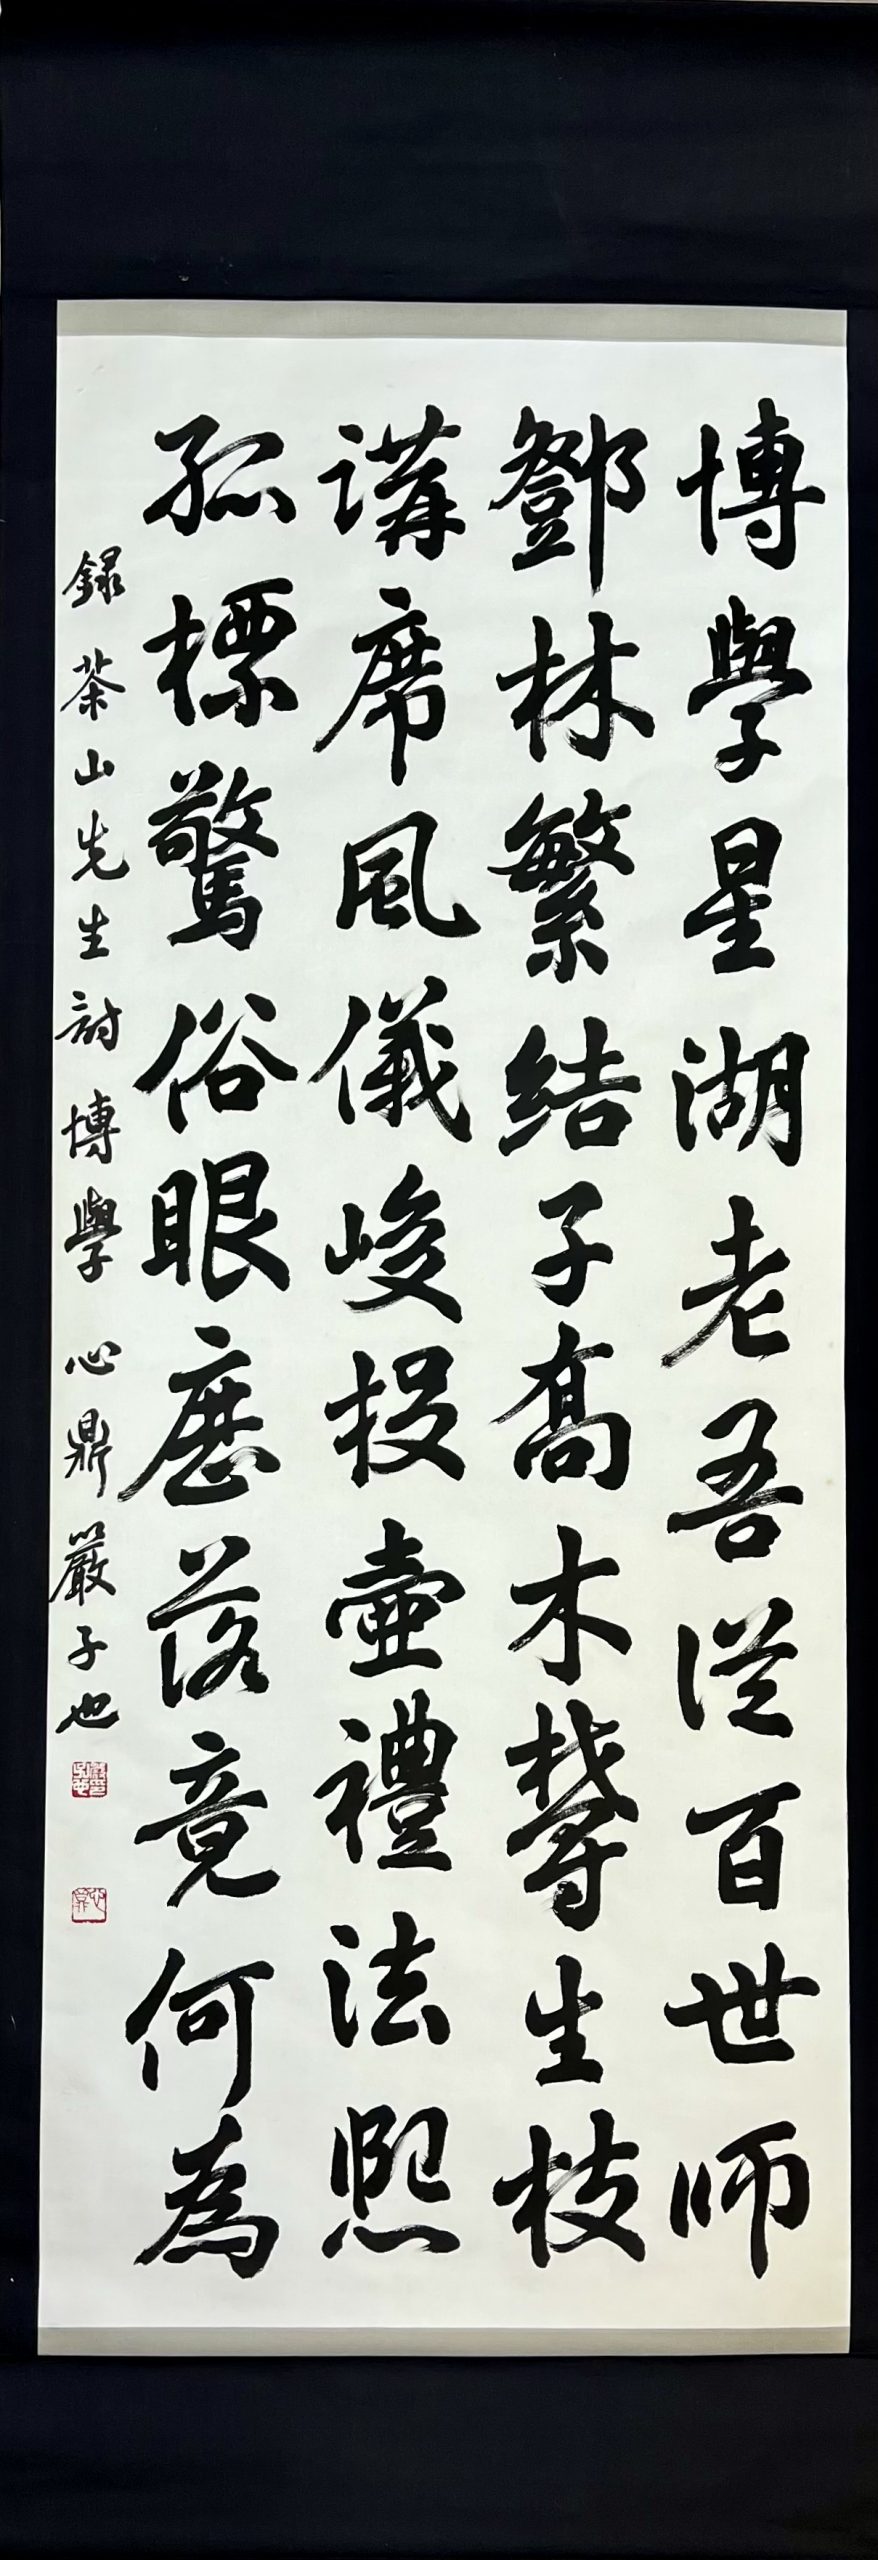 博學星湖老吾從百世師
鄧林繁結子高木鬱生枝
講席風儀峻投壺禮法熙
孤標驚俗眼歷落竟何為
錄茶山先生詩博學 心鼎嚴子也